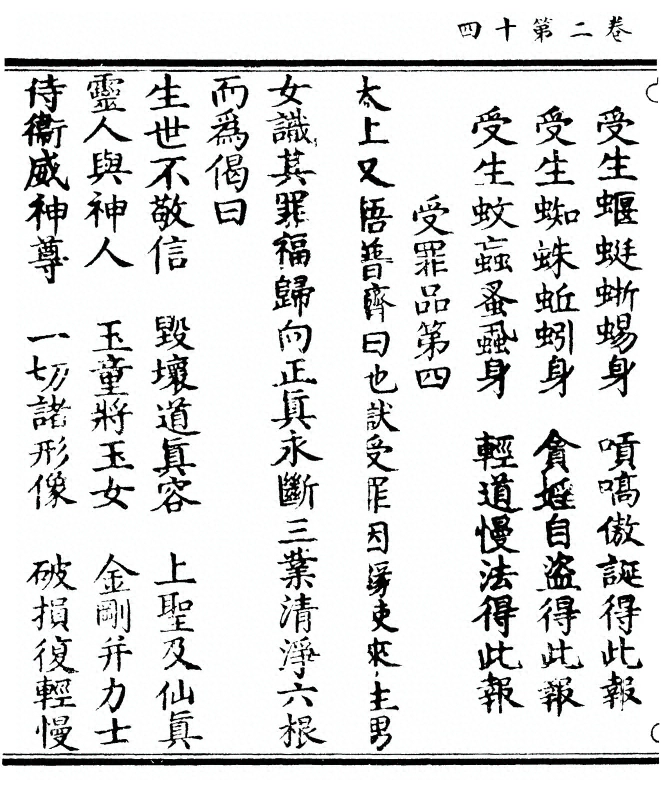 卷二第十四
受生蝘蜓蜥蜴身　嘳嚆傲誕得此報
受生蜘蛛蚯蚓身　貪婬自盜得此報
受生蚊蝱蚤虱身　輕道慢法得此報
受罪品第四
太上又語普濟曰也受罪因緣使來生男
女識其罪福歸向正眞永斷三業清淨六根
而爲偈曰
生世不敬信　毀壞道眞容　上聖及仙眞
靈人與神人　玉童將玉女　金剛并力士
侍衞威神尊　一切諸形像　破損復輕慢